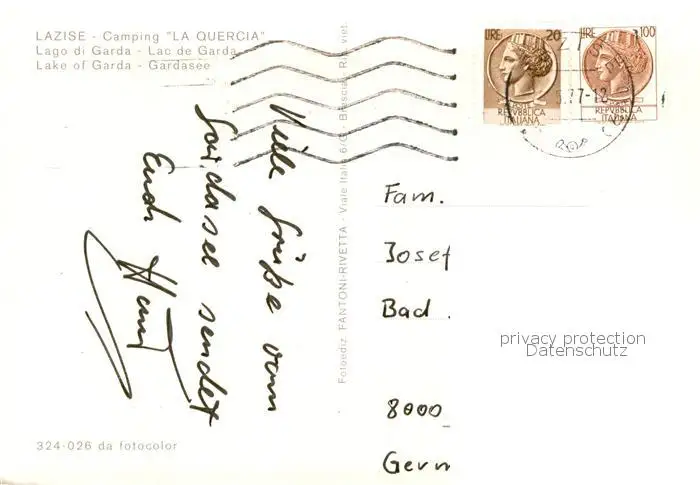 LAZISE - Camping "LA QUERCIA"
Lago di Garda - Lac de Garda
Lake of Garda - Gardasee
LIRE 20
REPVBBLICA
ITALIANA
LIRE 100
REPVBBLICA
ITALIANA
77-12
Viele Grüße vom
Gardasee sendet
Euch
Fotoediz. FANTONI-RIVETTA - Viale Italia 6/G - Brescia - Ri viet.
Fam.
Josef
Bad.
8000
Germ
privacy protection
Datenschutz
324-026 da fotocolor